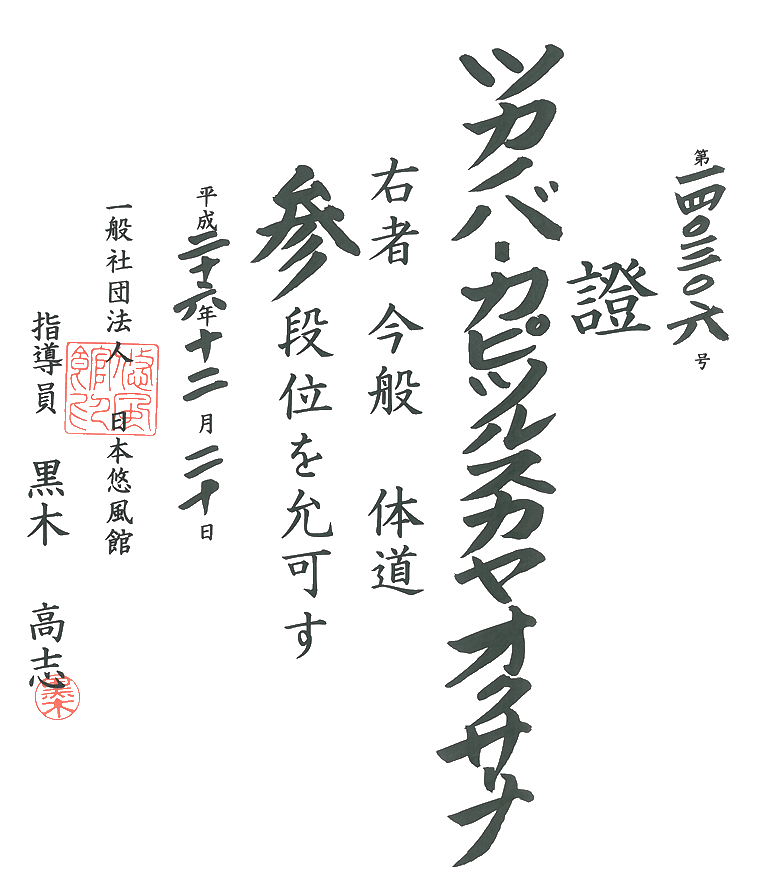 第一四〇三〇六号
證
ツカノバーカピツルスカヤオクサーナ
右者 今般 体道
参段位を允可す
平成二十六年十二月二十日
一般社団法人 日本悠風館
悠風館印
指導員 黒木 高志
黒木